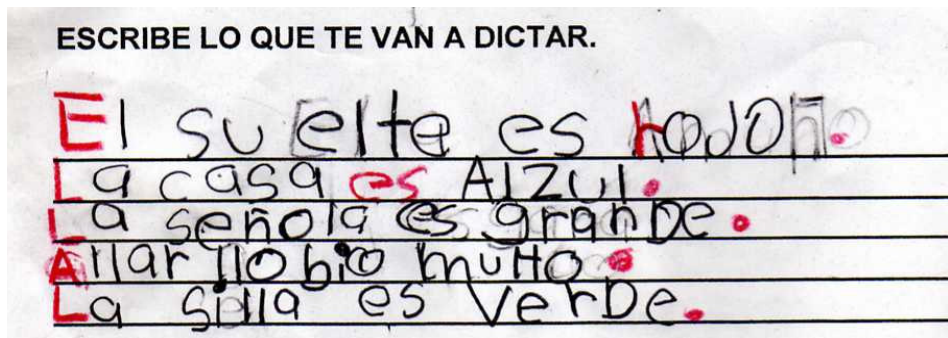 ESCRIBE LO QUE TE VAN A DICTAR.
El su elte es
La casa es Alzul.
La señola es granDe.
Allar llobio mutto.
La silla es VerDe.